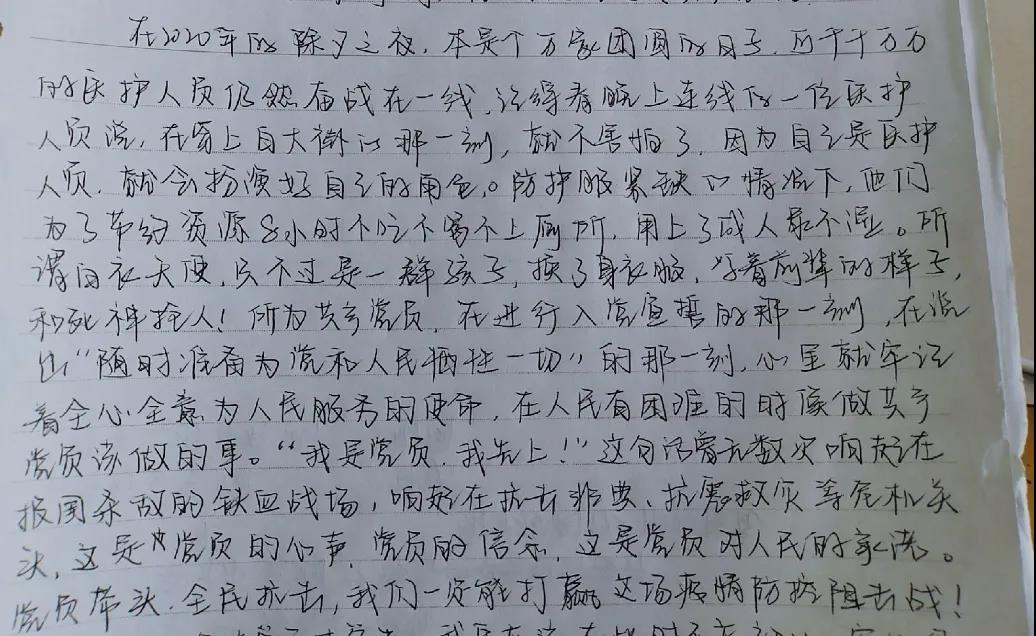 在2020年的除夕之夜，本是个万家团圆的日子，而千千万万
的医护人员仍然奋战在一线，记得春晚上连线的一位医护
人员说，在穿上白大褂的那一刻，就不害怕了，因为自己是医护
人员，就会扮演好自己的角色。防护服紧缺的情况下，他们
为了节约资源8小时不吃不喝不上厕所，用上了成人尿不湿。所
谓白衣天使，只不过是一群孩子，换了身衣服，学着前辈的样子，
和死神抢人！所为共产党员，在进行入党宣誓的那一刻，在说
出“随时准备为党和人民牺牲一切”的那一刻，心里就牢记
着全心全意为人民服务的使命，在人民有困难的时候做共产
党员该做的事。“我是党员，我先上！”这句话曾无数次响起在
报国杀敌的铁血战场，响起在抗击非典、抗震救灾等危机关
头，这是党员的心声，党员的信念，这是党员对人民的承诺。
党员带头，全民抗击，我们一定能打赢这场疫情防控阻击战！